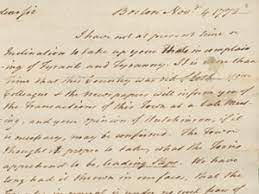 Boston Novr. 4 1772
I have not at present time or
Inclination to take up your time in complain
ing of Tyrants and Tyranny. It is more than
time that this Country was rid of both. Your
Colleague & the Newspapers will inform you of
the Transactions of this Town at a late Meet
ing, and your opinion of Hutchinson, if it
is necessary, may be confirmed. The Town
thought it proper to take, what the Tories
apprehend to be, leading Steps. We have
long had it thrown in our face, that the